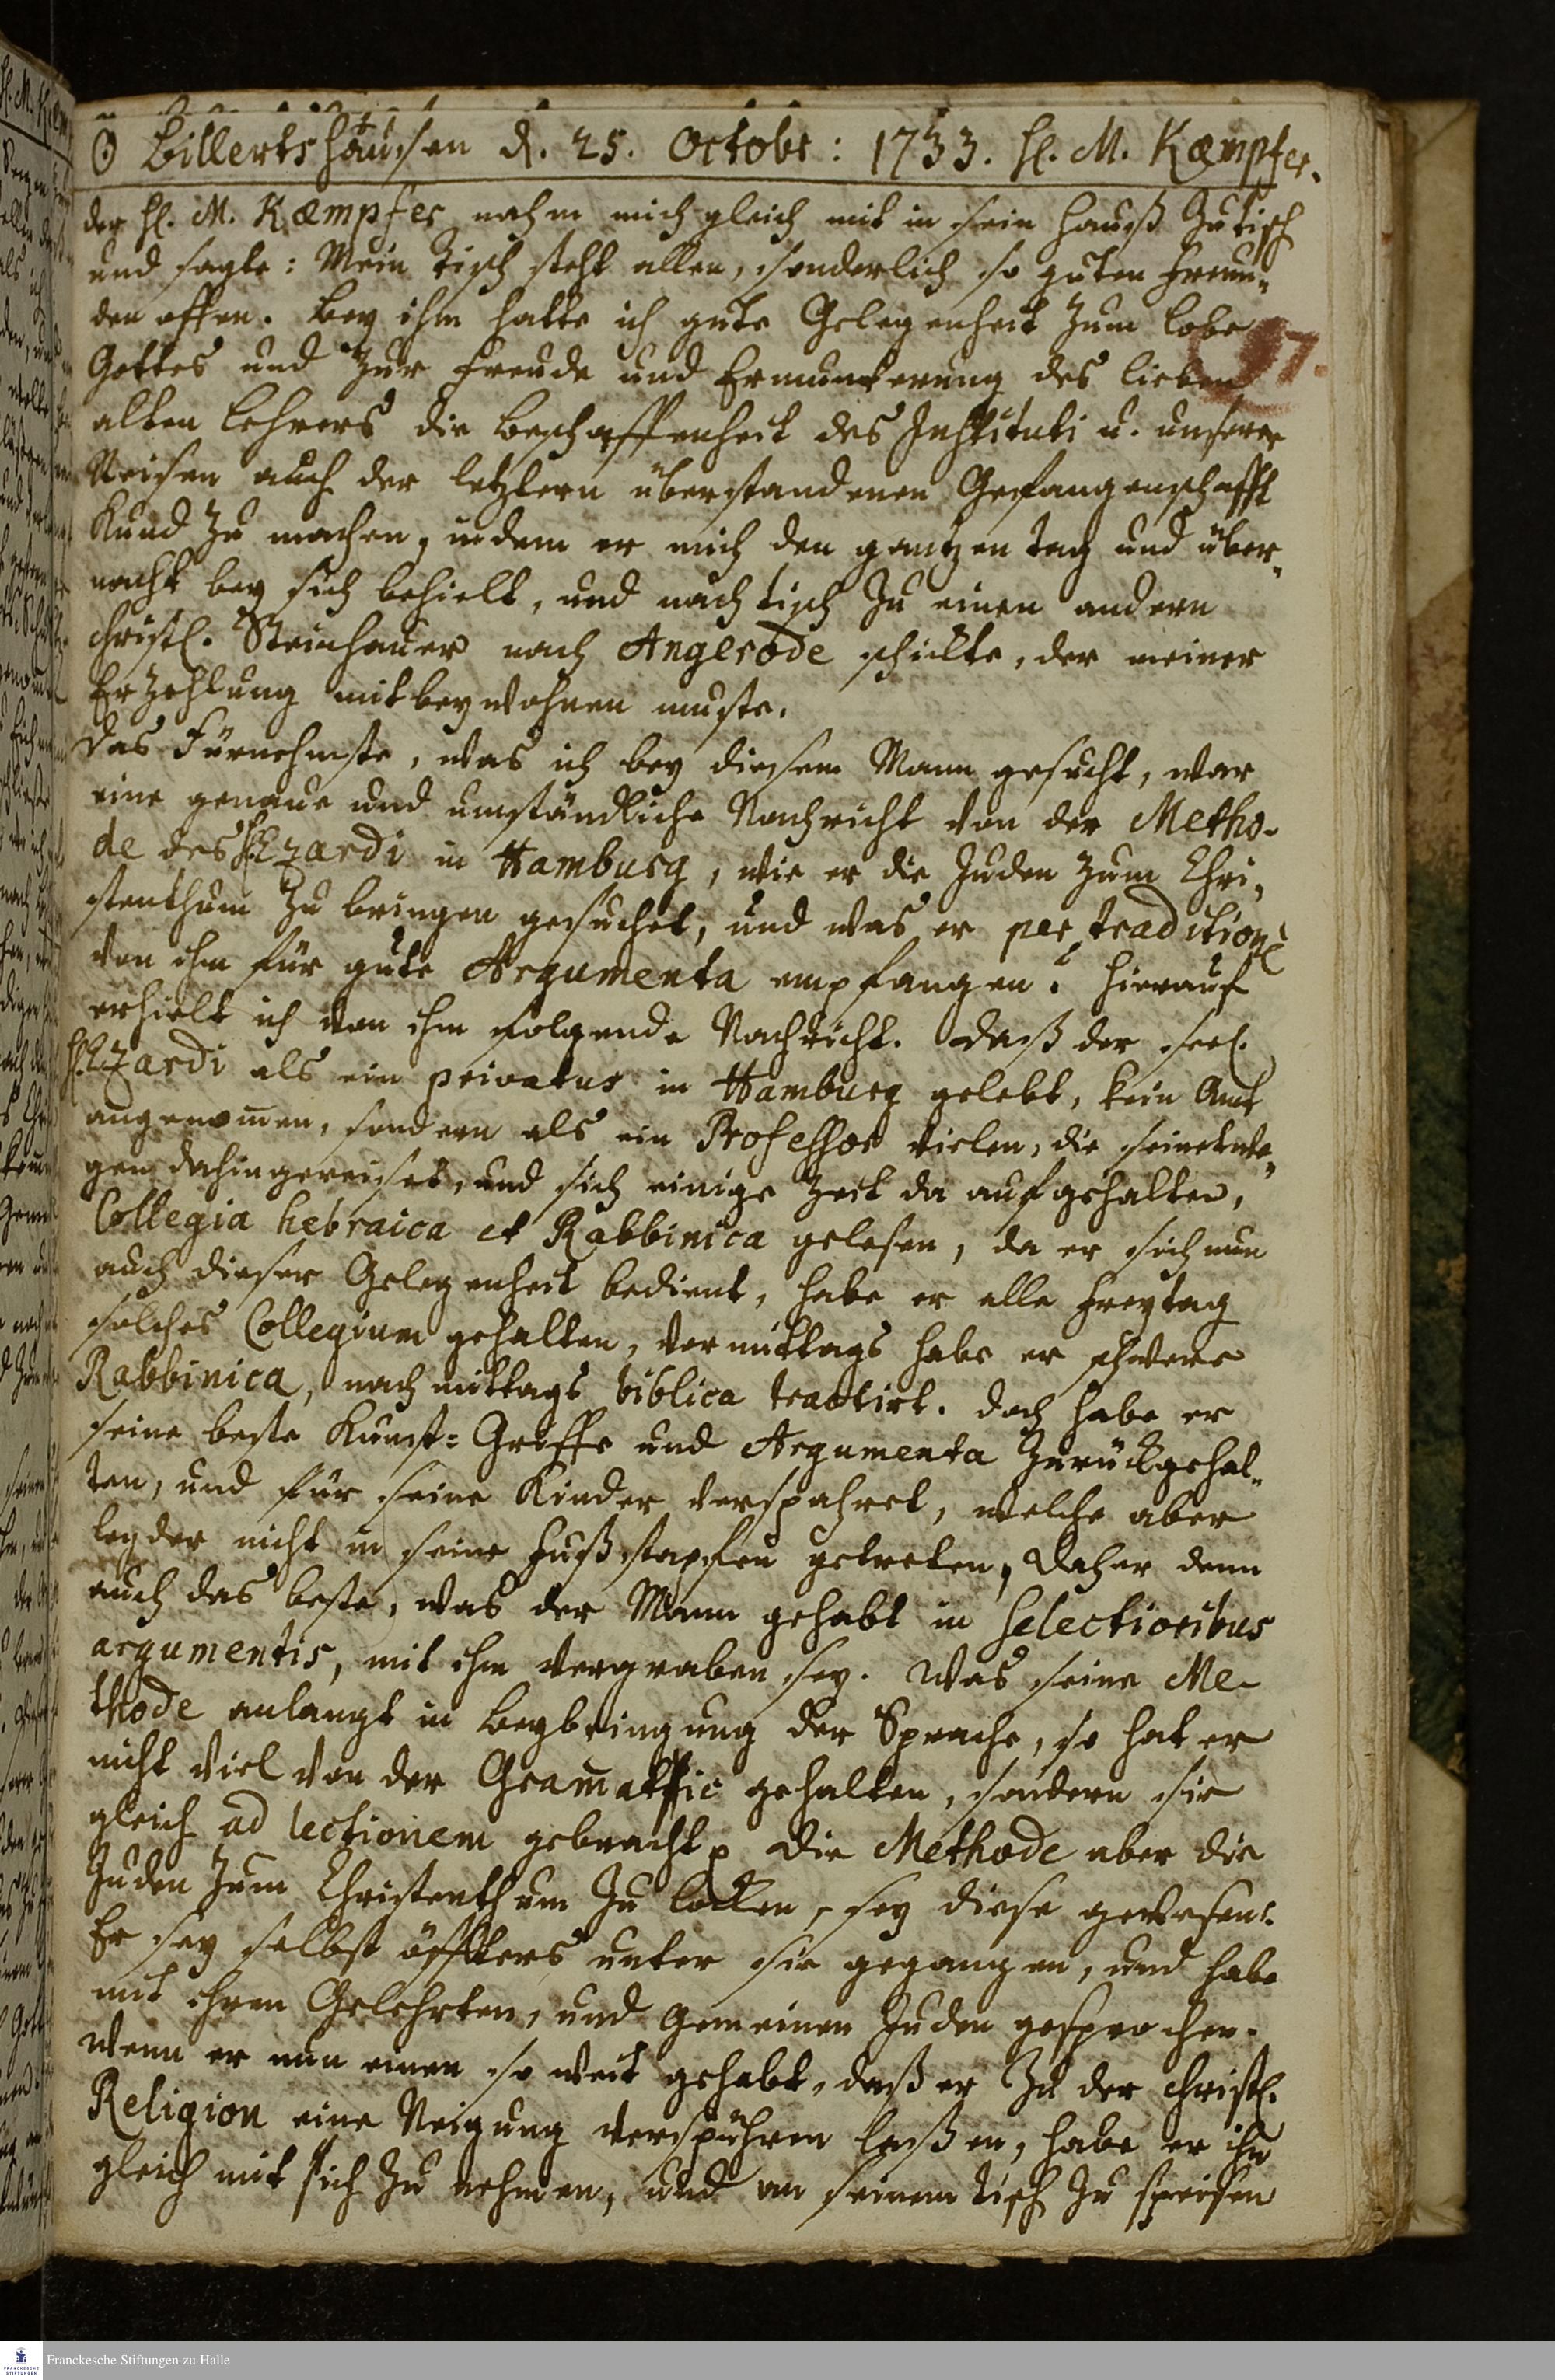 ☉ Billertshausen d. 25. Octobr: 1733. H. M. Kæmpfer.
der H. M. Kæmpfer nahm mich gleich mit in sein Hauß zu tisch
und sagte: Mein Tisch steht allen, sonderlich so guten Freun-
den offen. Bey ihm hatte ich gute Gelegenheit zum Lobe
97.
Gottes und zur Freude und Ermunterung des lieben
alten Lehrers die Beschaffenheit des Instituti u. unserer
Reisen auch der letztern überstandenen Gefangenschafft
kund zu machen, indem er mich den gantzen tag und über-
nacht bey sich behielt, und nach tisch zu einen andern
christl. Steinhauer nach Angerode schickte, der meiner
Erzehlung mit beywohnen muste.
Das Fürnehmste, was ich bey diesem Mann gesucht, war
eine genaue und umständliche Nachricht von der Metho-
de des H. Ezardi in Hamburg, wie er die Juden zum Chri-
stenthum zu bringen gesuchet, und was er per traditione
von ihm für gute Argumenta empfangen. Hierauf
erhielt ich von ihm folgende Nachricht. Daß der seel.
H. Ezardi als ein privatus in Hamburg gelebt, kein Amt
angenom̄en, sondern als ein Professor vielen, die seinetwe-
gen dahingereiset, und sich einige Zeit da aufgehalten,
Collegia hebraica et Rabbinica gelesen, da er sich nun
auch dieser Gelegenheit bedient, habe er alle Freytag
solches Collegium gehalten, vormittags habe er schwere
Rabbinica, nachmittags biblica tractirt. Doch habe er
seine beste Kunst-Griffe und Argumenta zurückgehal-
ten, und für seine Kinder verspahret, welche aber
leyder nicht in seine Fußstapfen getreten, daher denn
auch das beste, was der Mann gehabt in selectioribus
argumentis, mit ihm vergraben sey. Was seine Me-
thode anlangt in Beybringung der Sprache, so hat er
nicht viel von der Gram̄attic gehalten, sondern sie
gleich ad lectionem gebracht. Die Methode aber die
Juden zum Christenthum zu locken, sey diese gewesen:
Er sey selbst öffters unter sie gegangen, und habe
mit ihren Gelehrten, und gemeinen Juden gesprochen.
Wenn er nun einen so weit gehabt, daß er zu der christl.
Religion eine Neigung verspühren laßen, habe er ihn
gleich mit sich zu nehmen, und an seinem tisch zu speisen
Franckesche Stiftungen zu Halle